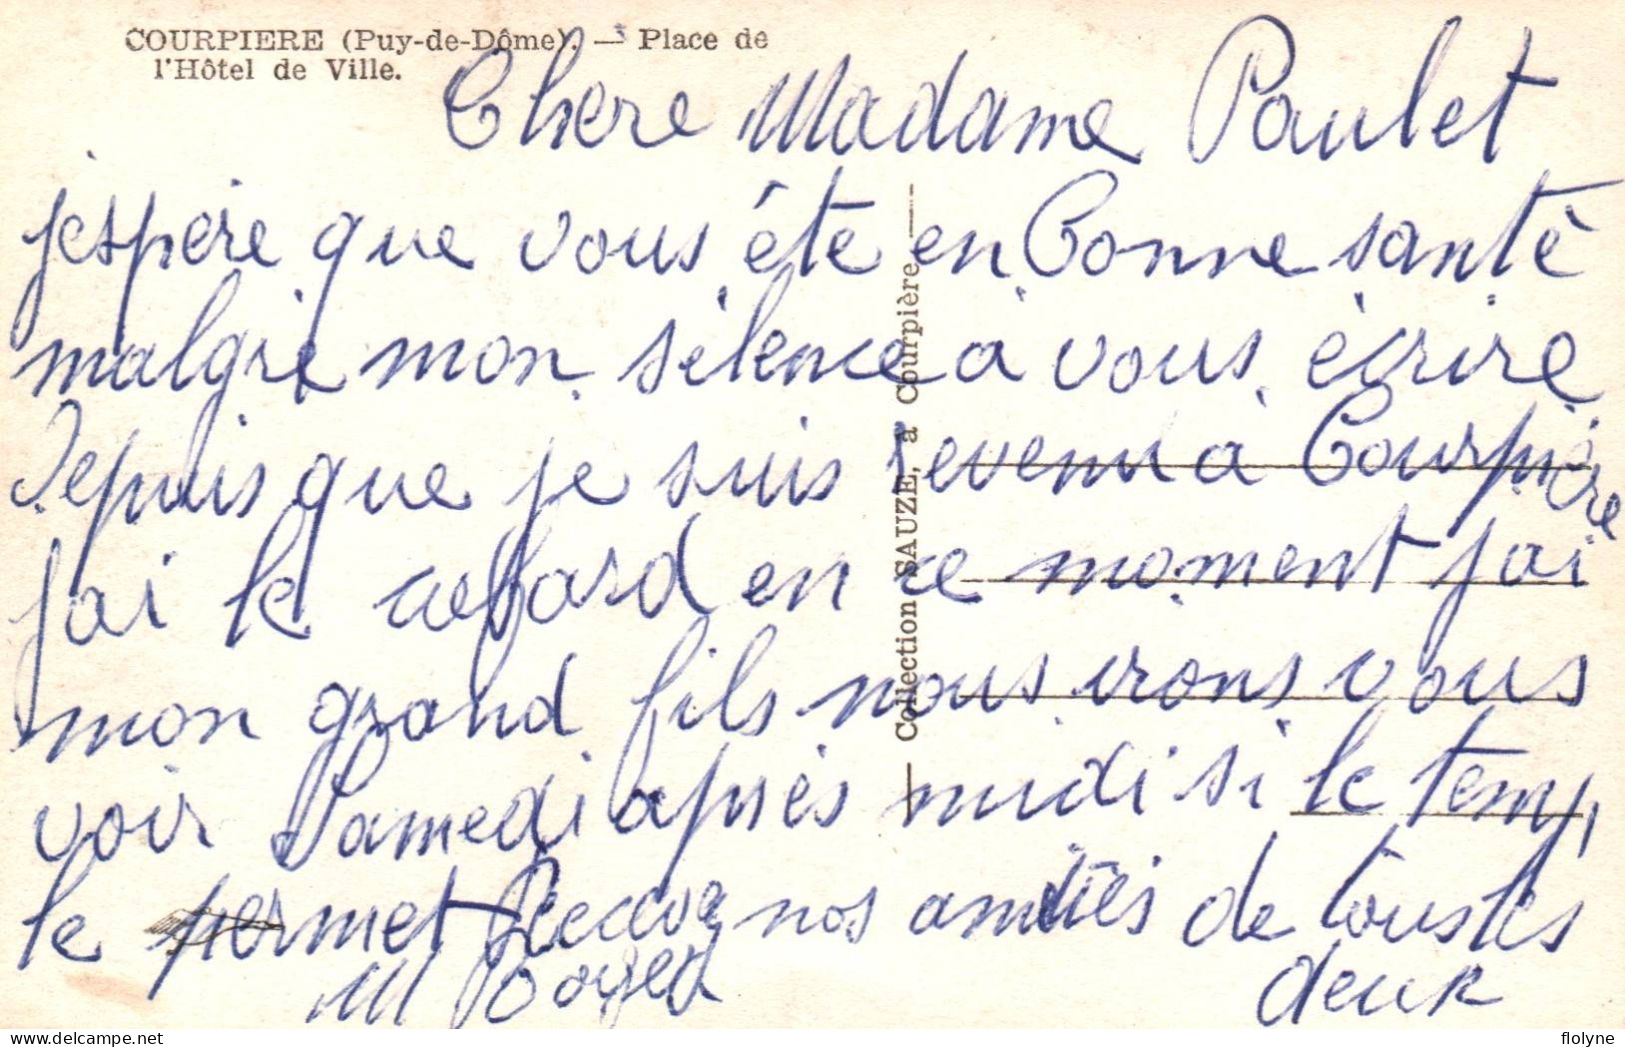 COURPIERE (Puy-de-Dôme). — Place de
l'Hôtel de Ville.
Chere Madame Paulet
jespère que vous éte en bonne santé
malgré mon silence a vous écrire
Depuis que je suis revenu à Courpière
jai le cafard en ce moment jai
mon grand fils nous irons vous
voir Samedi après midi si le temps
le permet Recevez nos amitiés de tous les
deux
M Boyer
— Collection SAUZE, à Courpière —
flolyne